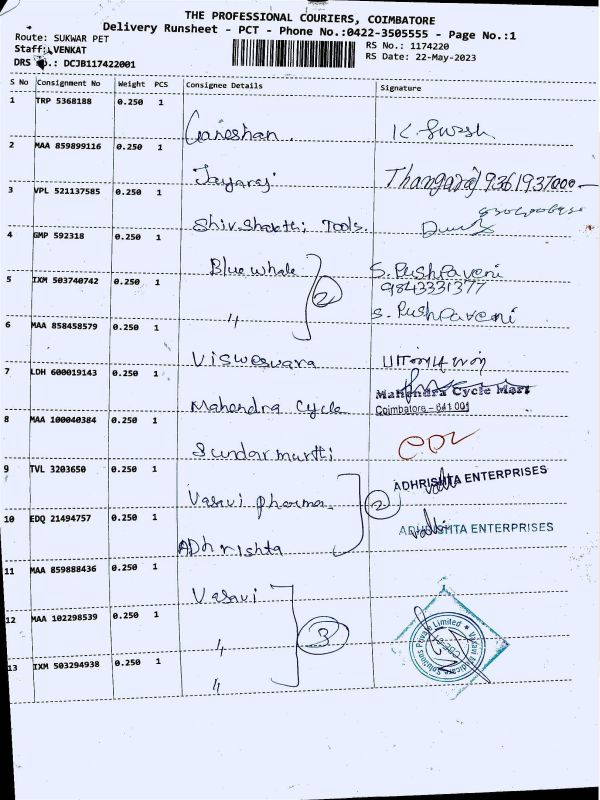 THE PROFESSIONAL COURIERS, COIMBATORE
Delivery Runsheet - PCT - Phone No.:0422-3505555 - Page No.:1
Route: SUKWAR PET
RS No.: 1174220
Staff: VENKAT
RS Date: 22-May-2023
DRS No.: DCJB117422001
S No Consignment No Weight PCS Consignee Details Signature
1 TRP 5368188 0.250 1 Ganeshan. K. Suresh
2 MAA 859899116 0.250 1 Jayaraj. Thangaraj 9361937000
3 VPL 521137585 0.250 1 Shiv. Shakthi Tools.
4 GMP 592318 0.250 1 Blue whale 2 S. Pushpaveni
9843331377
5 IXM 503740742 0.250 1 〃 S. Pushpaveni
6 MAA 858458579 0.250 1 Visweswara
7 LDH 600019143 0.250 1 Mahendra Cycle Mahendra Cycle Mart
Coimbatore - 641 001
8 MAA 100040384 0.250 1 Sundar murthi
9 TVL 3203650 0.250 1 Vasavi pharma. 2 ADHRISHTA ENTERPRISES
10 EDQ 21494757 0.250 1 ADhrishta ADHRISHTA ENTERPRISES
11 MAA 859888436 0.250 1 Vasavi
12 MAA 102298539 0.250 1 〃 3
13 IXM 503294938 0.250 1 〃